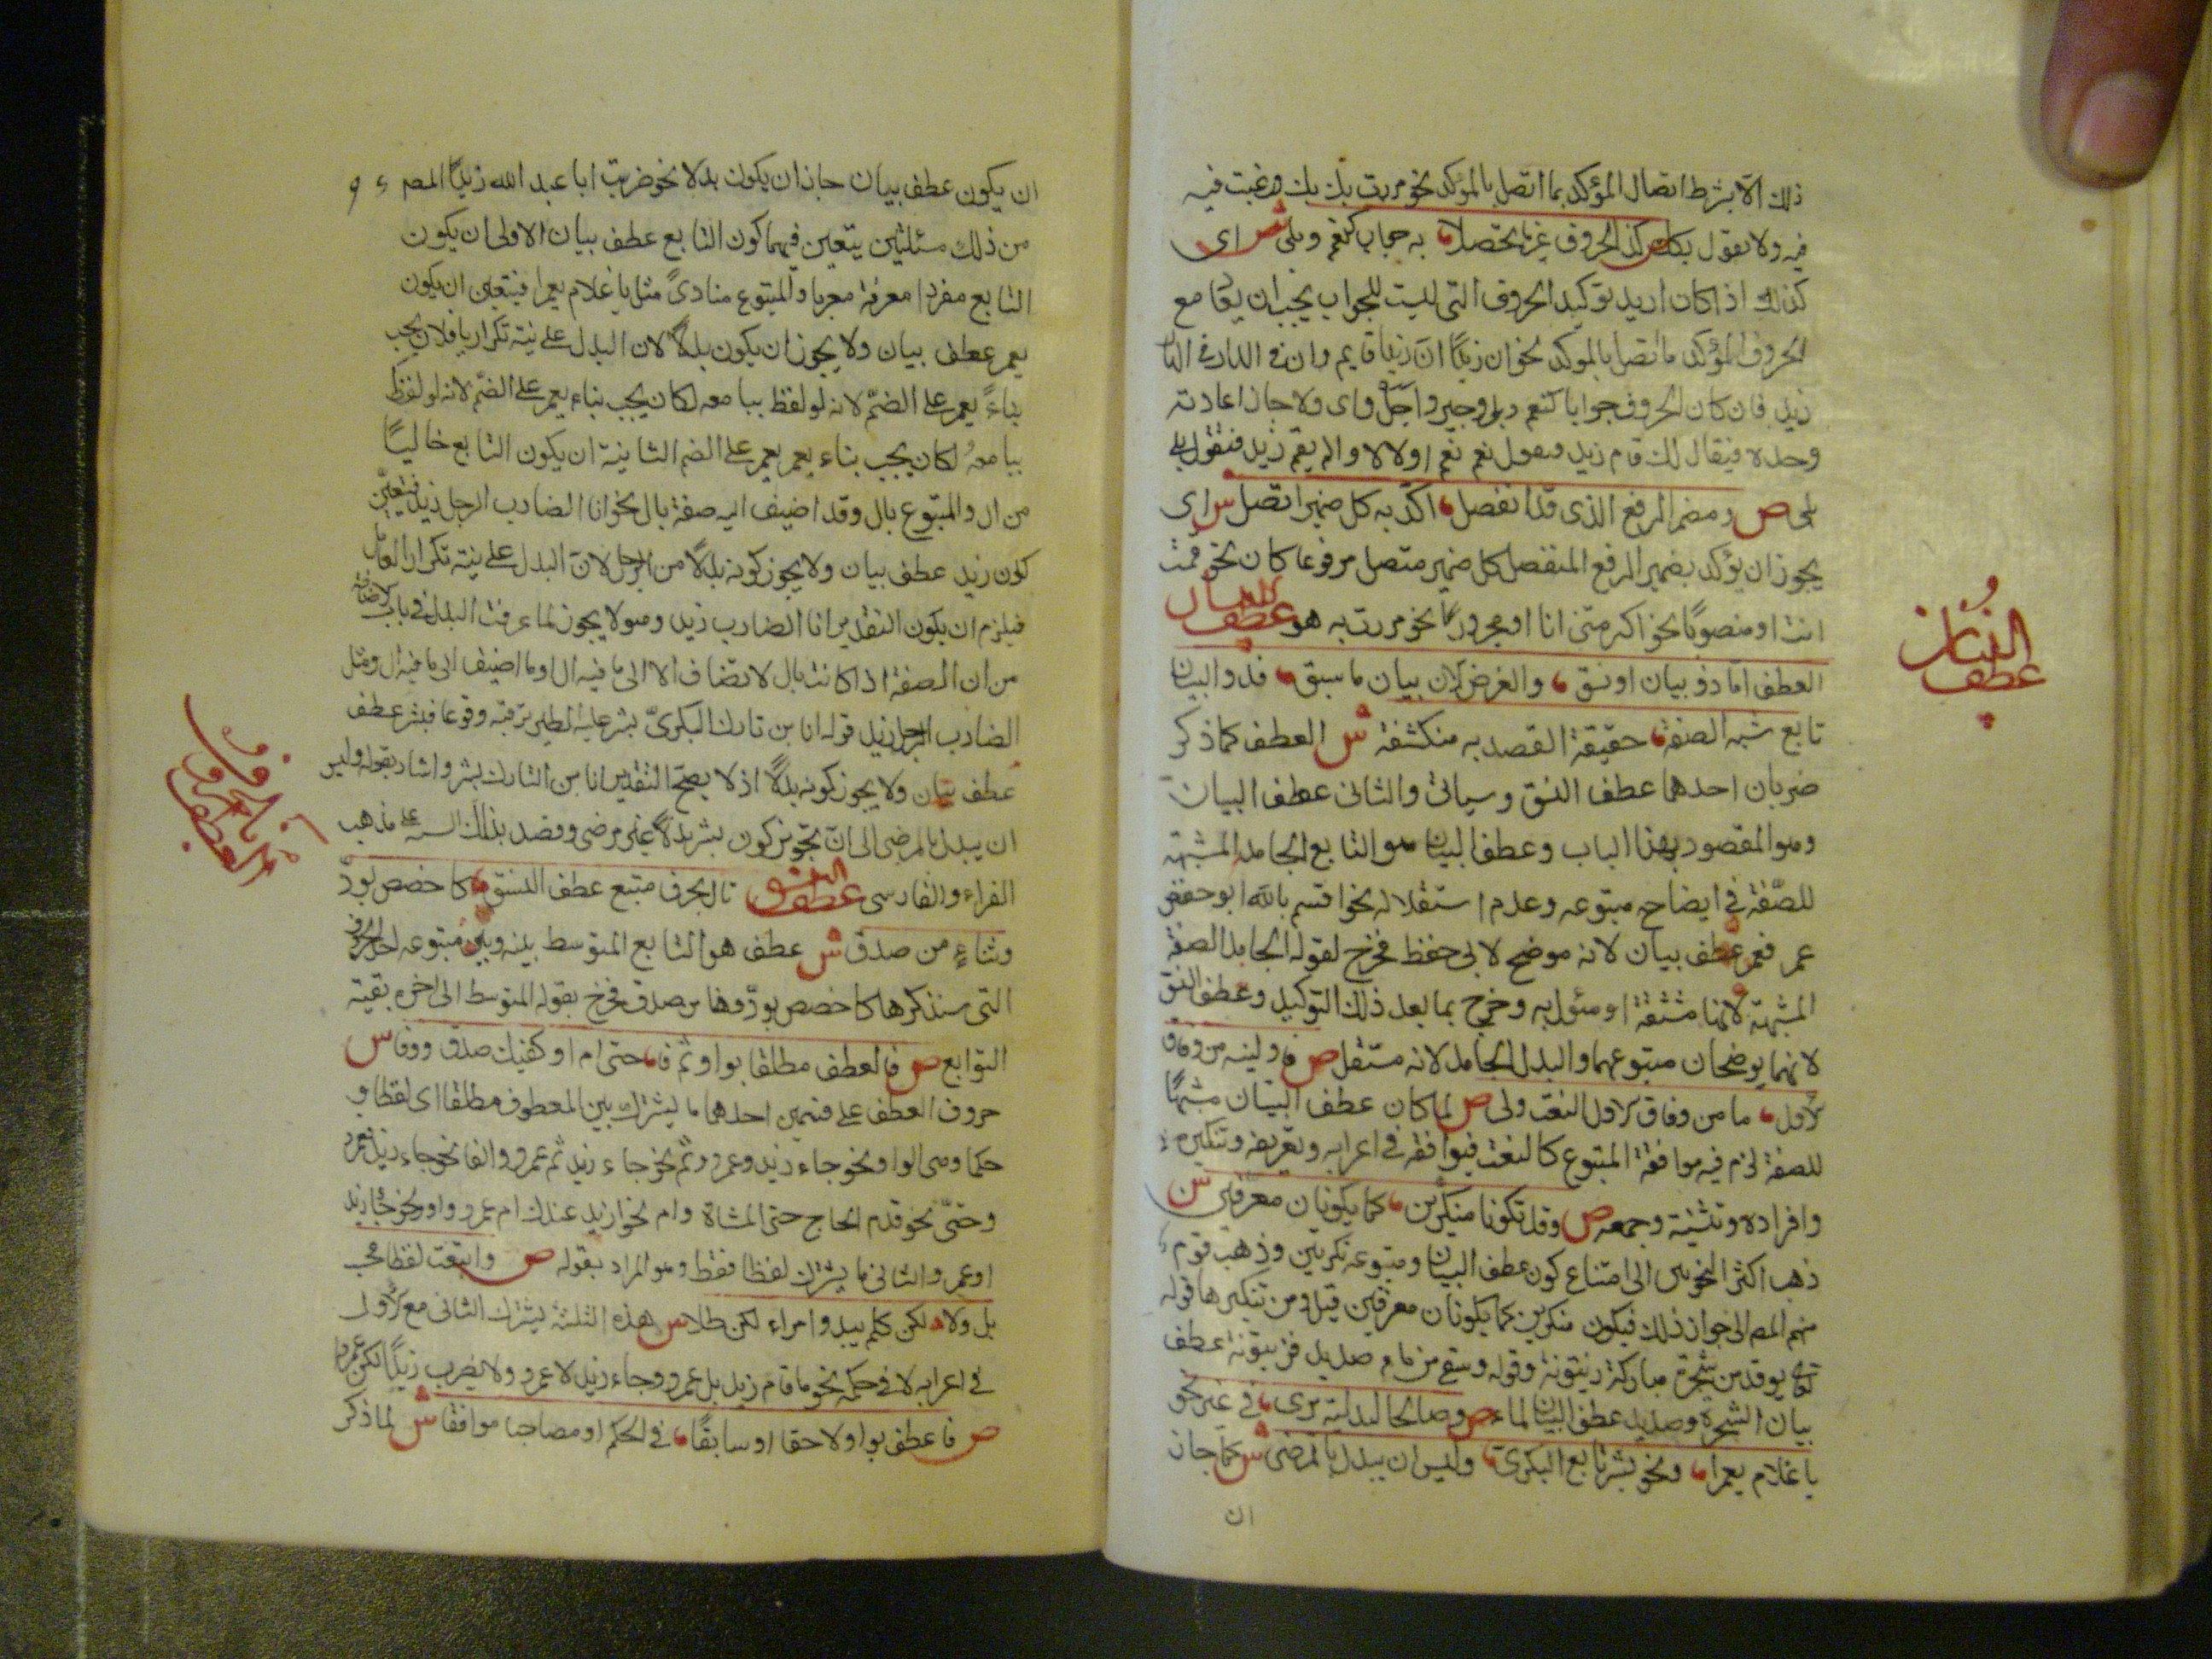 ذلك الا بشرط اتصال المؤكد بما اتصل بالمؤكد نحو مررت بك بك ورغبت فيه
فيه ولا تقول بك ك ص كذا الحروف غير ما تحصلا به جواب كنعم وبلى ش اى
كذلك اذا كان اريد توكيد الحروف التى ليست للجواب يجب ان يعاد مع
الحروف المؤكد ما اتصل بالموكد نحو ان زيدا ان زيدا قايم وان فى الدار فى الدار
زيد فان كان الحروف جوابا كنعم وبلى وجير واجل واى ولا جاز اعادته
وحده فيقال لك قام زيد فتقول نعم نعم او لا لا والم يقم زيد فتقول بلى
بلى ص ومضمر الرفع الذى قد انفصل اكد به كل ضمير اتصل س اى
يجوز ان يؤكد بضمير الرفع المنفصل كل ضمير متصل مرفوعا كان نحو قمت
انت او منصوبا نحو اكرمتنى انا او مجرورا نحو مررت به هو عطف البيان
العطف اما ذو بيان او نسق والغرض الان بيان ما سبق فذو البيان
تابع شبه الصفة حقيقة القصد به منكشفة ش العطف كما ذكر
ضربان احدهما عطف النسق وسياتى والثانى عطف البيان
وهو المقصود بهذا الباب وعطف البيان هو التابع الجامد المشبهة
للصّفة فى ايضاح متبوعه وعدم استقلاله نحو اقسم بالله ابو حفص
عمر فعمر عطف بيان لانه موضح لابى حفظ فخرج لقوله الجامد الصفة
المشبهة لانها مشتقة او مئول به وخرج بما بعد ذلك التوكيد وعطف النسق
لانهما يوضحان متبوعهما والبدل الجامد لانه مستقل ص فاولينه من وفاق
الاول ما من وفاق الاول النعت ولى ص لما كان عطف البيان مشبها
للصفة لزم فيه موافقة المتبوع كالنعت فيوافقه فى اعرابه وتعريفه وتنكيره
وافراده وتثنيته وجمعه ص وقد تكونا منكرين كما يكونان معرفين س
ذهب اكثر النحويين الى امتناع كون عطف البيان ومتبوعه نكرتين وذهب قوم
منهم المص الى جواز ذلك فيكون منكرين كما يكونان معرفين قيل ومن تنكيرها قوله
تعالى يوقد من شجرة مباركة زيتونة وقوله وسقى من ماء صديد فزيتونة عطف
بيان الشجرة وصديد عطف البيان لماء ص وصالحا لبدلية يرى فى غير نحو
يا غلام يعمرا ونحو بشر تابع البكرى وليس ان يبدل بالمرضى ش كما جاز
ان
عطف
البيان
ان يكون عطف بيان جاز ان يكون بدلا نحو ضربت ابا عبد الله زيدا المص
من ذلك مسئلتين يتعين فيهما كون التابع عطف بيان الاولى ان يكون
التابع مفردا معرفة معربا والمتبوع منادى مثل يا غلام يعمرا فيتعين ان يكون
يعمر عطف بيان ولا يجوز ان يكون بدلا لان البدل على نية تكرار يا فلان يجب
بناء يعمر على الضمّ لانه لو لفظ بيا معه لكان يجب بناء يعمر على الضمّ لانه لو لفظ
بيا معه لكان يجب بناء يعمر يعمر على الضم الثانية ان يكون التابع خاليا
من ال والمتبوع بال وقد اضيف اليه صفة بال نحو انا الضارب الرجل زيد فيتعين
كون زيد عطف بيان ولا يجوز كونه بدلا من الرجل لان البدل على نية تكرار العامل
فيلزم ان يكون التقدير انا الضارب زيد وهو لا يجوز لما عرفت البدل فى باب الاضافة
من ان الصفة اذا كانت بال لا تضاف الا الى ما فيه ال او ما اضيف الى ما فيه ال ومثل
الضارب الرجل زيد قوله انا بن تارك البكرىّ بشر عليه الطير ترقبه وقوعا فبشر عطف
عطف بيان ولا يجوز كونه بدلا اذ لا يصحّ التقدير انا بن التارك بشر واشار بقوله وليس
ان يبدل بالمرضى الى انّ تجويز كون بشر بدلا غير مرضى وقصد بذلك على مذهب
الفراء والفارسى عطف النسق تال بحرف متبع عطف النسق كاخصص بودّ
وثناءٍ من صدق ش عطف هو التابع المتوسط بينه وبين متبوعه احد الحروف
التى سنذكرها كاخصص بودّ وفا من صدق فخرج بقوله المتوسط الى اخره بقية
التوابع ص فالعطف مطلقا بواو ثم فا حتى ام او كفيك صدق ووفا س
حروف العطف على قسمين احدهما ما يشرك بين المعطوف مطلقا اى لفظا و
حكما وهى الواو نحو جاء زيد وعمرو وثم نحو جاء زيد ثم عمرو والفا نحو جاء زيد فعمرو
وحتىّ نحو قدم الحاج حتى المشاة وام نحو ازيد عندك ام عمرو واو نحو جاء زيد
او عمرو والثانى ما يشرك لفظا فقط وهو المراد بقوله ص واتبعت لفظا فحسب
بل ولا لكن كلم يبدو امراء لكن طلا س هذه الثلثة يشرك الثانى مع الاول
فى اعرابه لا فى حكمه نحو ما قام زيد بل عمرو وجاء زيد لا عمرو ولا يضرب زيدا لكن عمروا
ص فاعطف بواو لاحقا او سابقا فى الحكم او مصاحبا موافقا ش لما ذكر